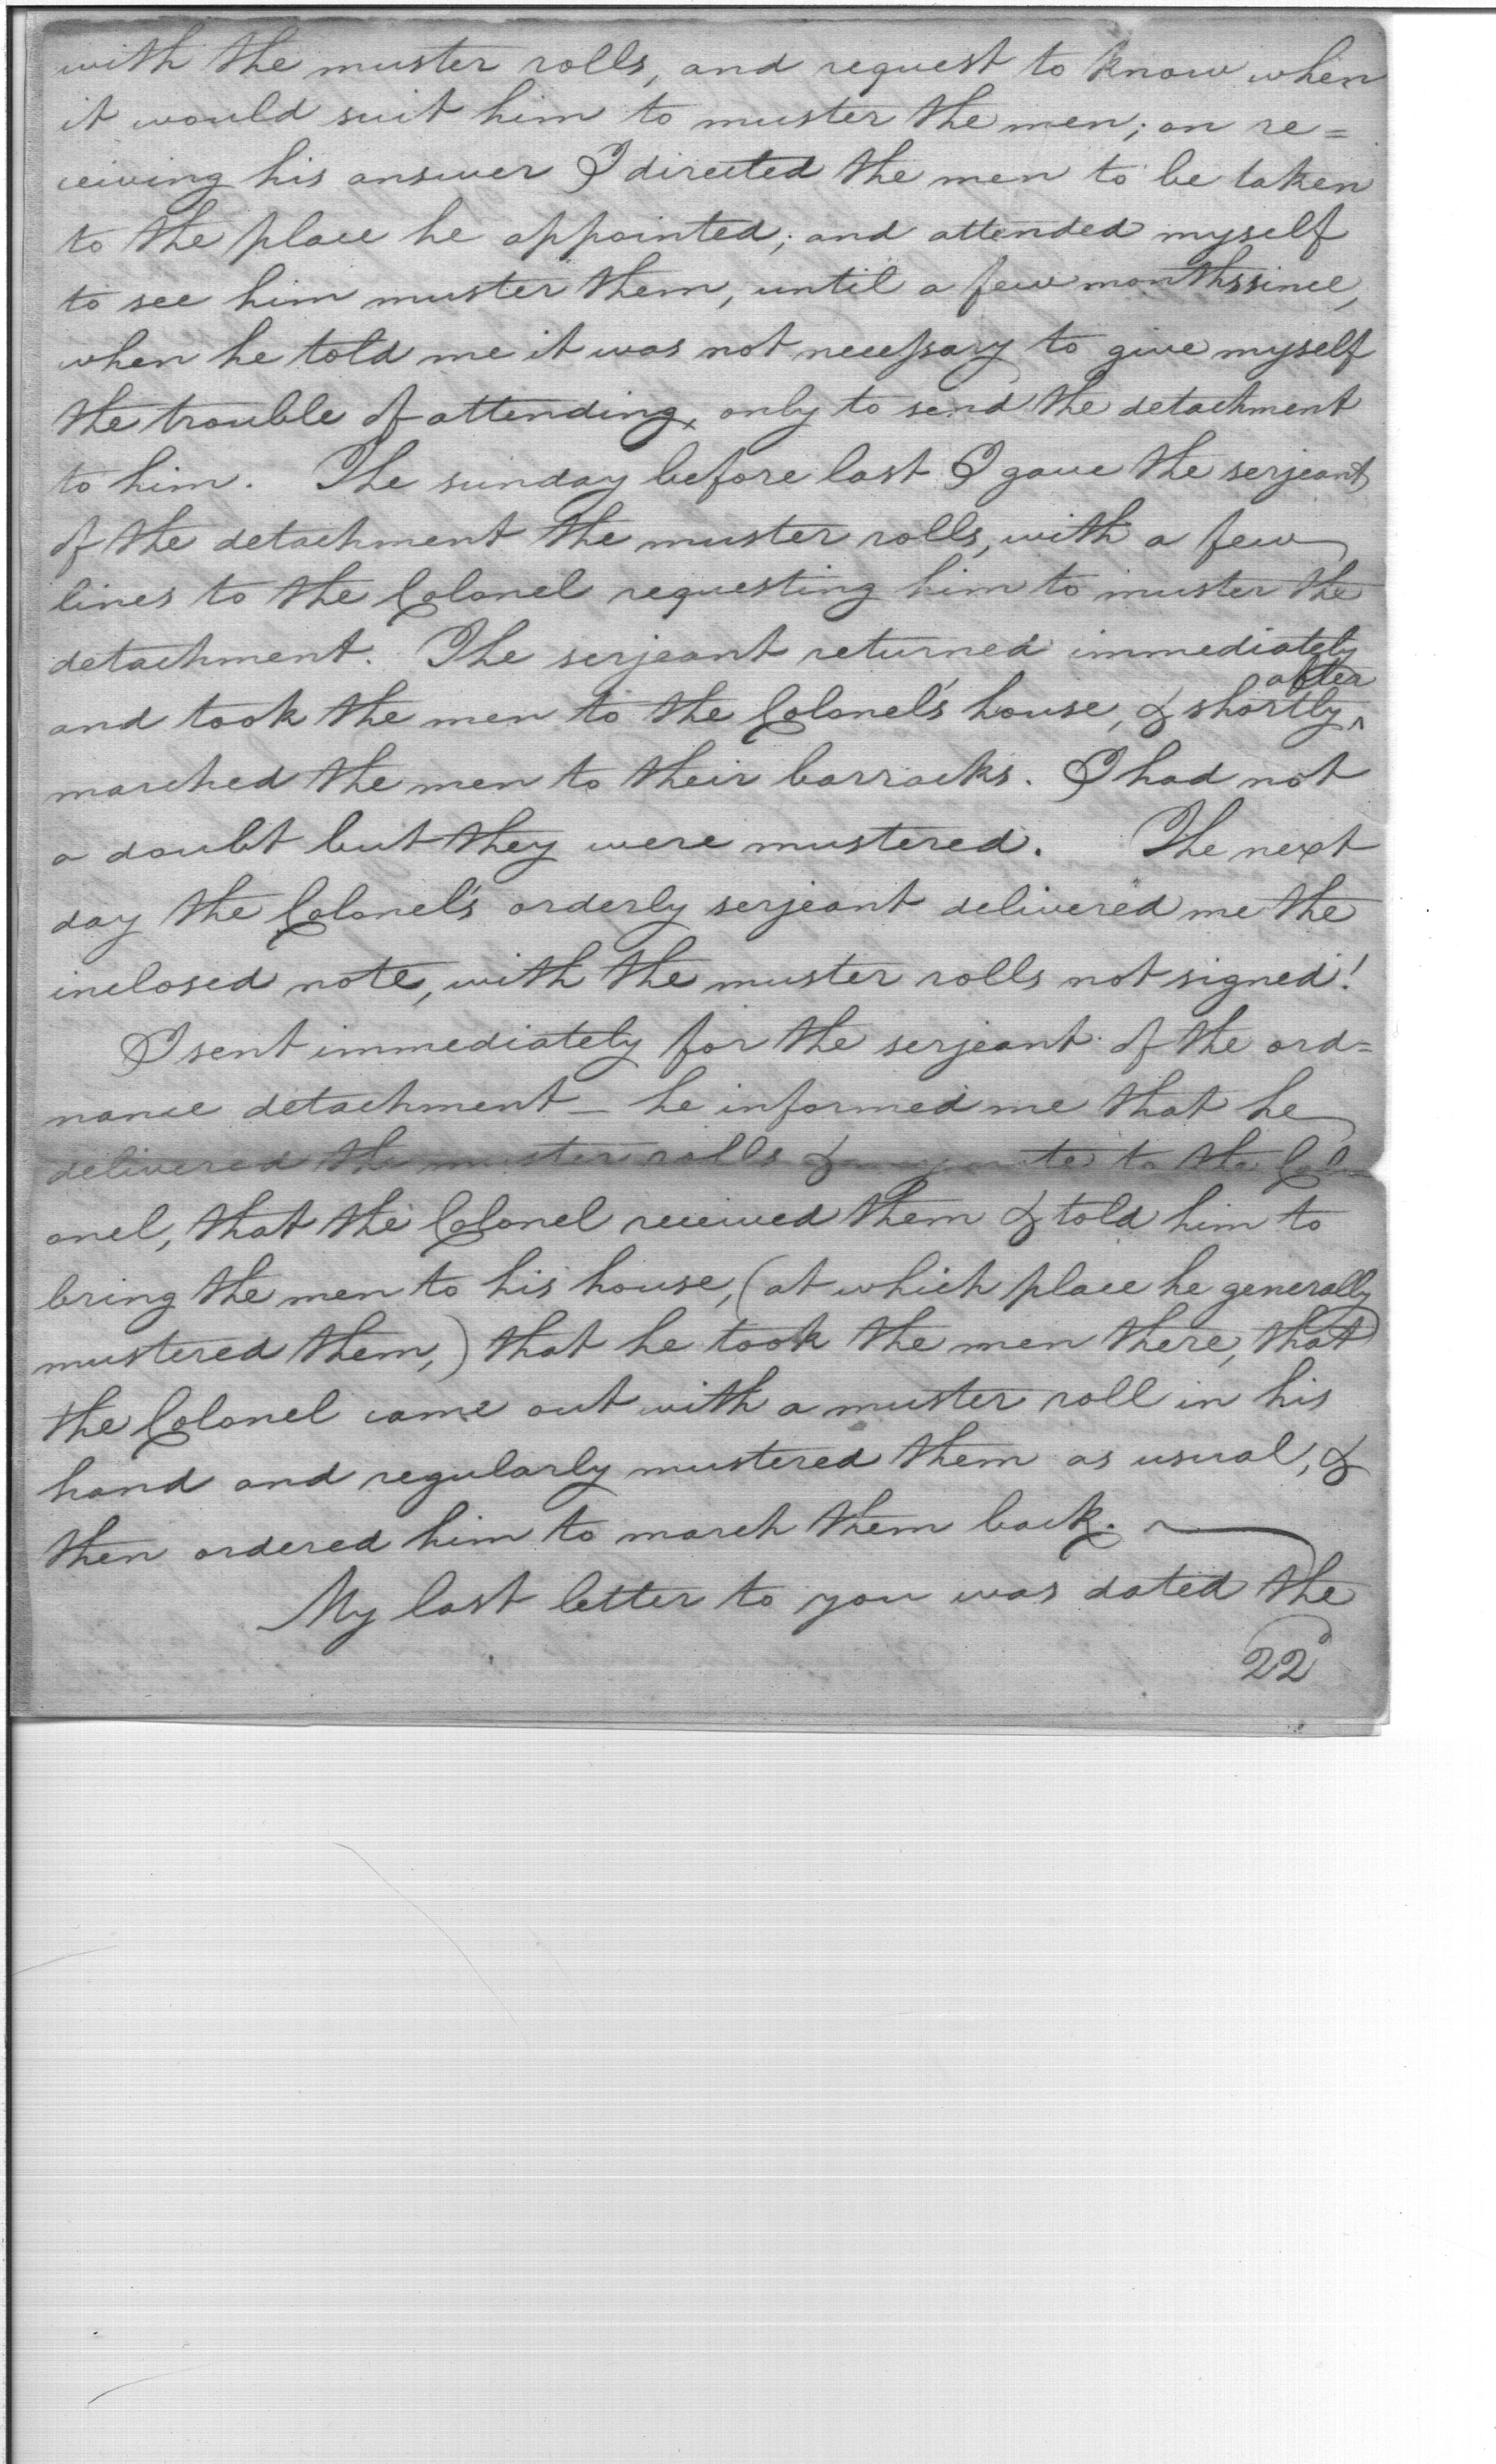 with the muster rolls, and request to know when
it would suit him to muster the men; on re=
ceiving his answer I directed the men to be taken
to the place he appointed; and attended myself
to see him muster them, until a few months since,
when he told me it was not necessary to give myself
the trouble of attending, only to send the detachment
to him. The sunday before last I gave the serjeant
of the detachment the muster rolls, with a few
lines to the Colonel requesting him to muster the
detachment. The serjeant returned immediately
after
and took the men to the Colonel's house, & shortly^
marched the men to their barracks. I had not
a doubt but they were mustered. The next
day the Colonel's orderly serjeant delivered me the
inclosed note, with the muster rolls not signed!
I sent immediately for the serjeant of the ord=
nance detachment – he informed me that he
delivered the muster rolls & to the Col-
onel, that the Colonel received them & told him to
bring the men to his house, (at which place he generally
mustered them,) that he took the men there, that
the Colonel came out with a muster roll in his
hand and regularly mustered them as usual, &
then ordered him to march them back.
My last letter to you was dated the
22d